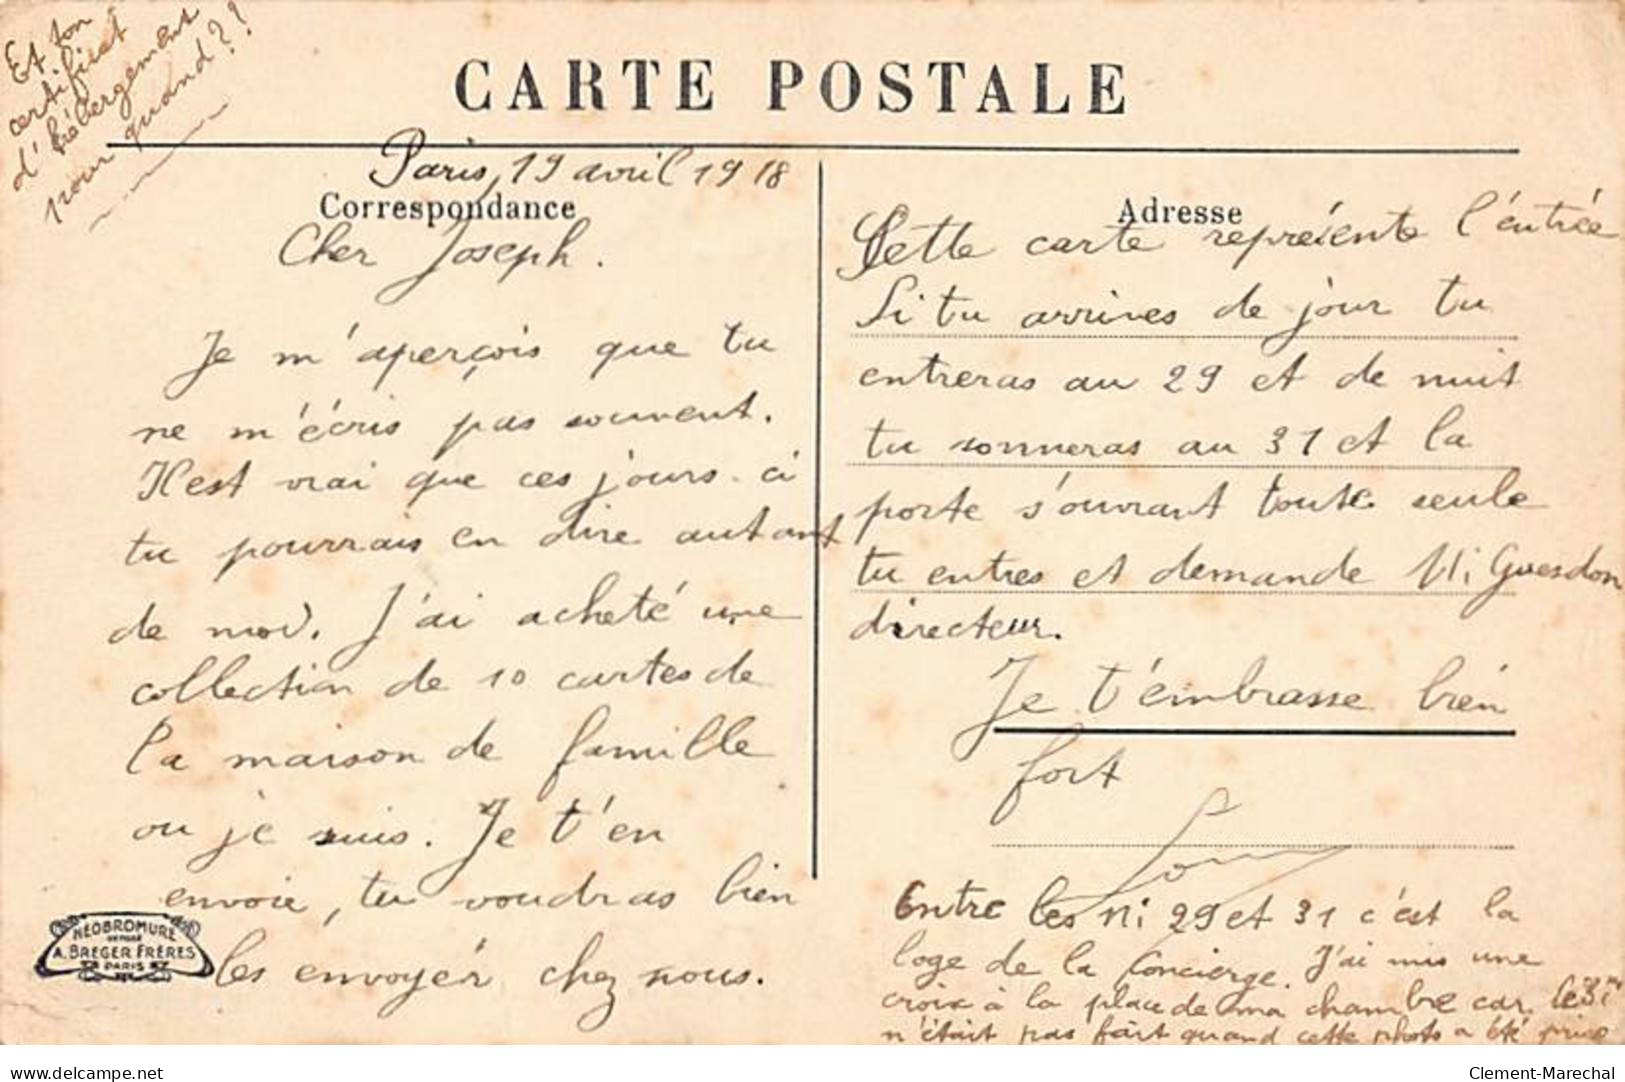 Et ton
certificat
d'hébergement
pour quand??
CARTE POSTALE
Paris, 19 avril 1918
Correspondance
Cher Joseph.
Je m'aperçois que tu
ne m'écris pas souvent.
Il est vrai que ces jours-ci
tu pourrais en dire autant
de moi. J'ai acheté une
collection de 10 cartes de
la maison de famille
ou je suis. Je t'en
envoie, tu voudras bien
les envoyér chez nous.
NÉOBROMURE
A. BREGER FRÈRES
PARIS
Adresse
Cette carte représente l'éntrée
Si tu arrives de jour tu
entreras au 29 et de nuit
tu sonneras au 31 et la
porte s'ouvrant toute seule
tu entres et demande Mr Guesdon
directeur.
Je t'embrasse bién
fort
Entre les Ni 29 et 31 c'est la
loge de la Concierge. J'ai mis une
croix à la place de ma chambre car le 3i
n'était pas fait quand cette photo a été prise
Clement-Marechal
delcampe.net